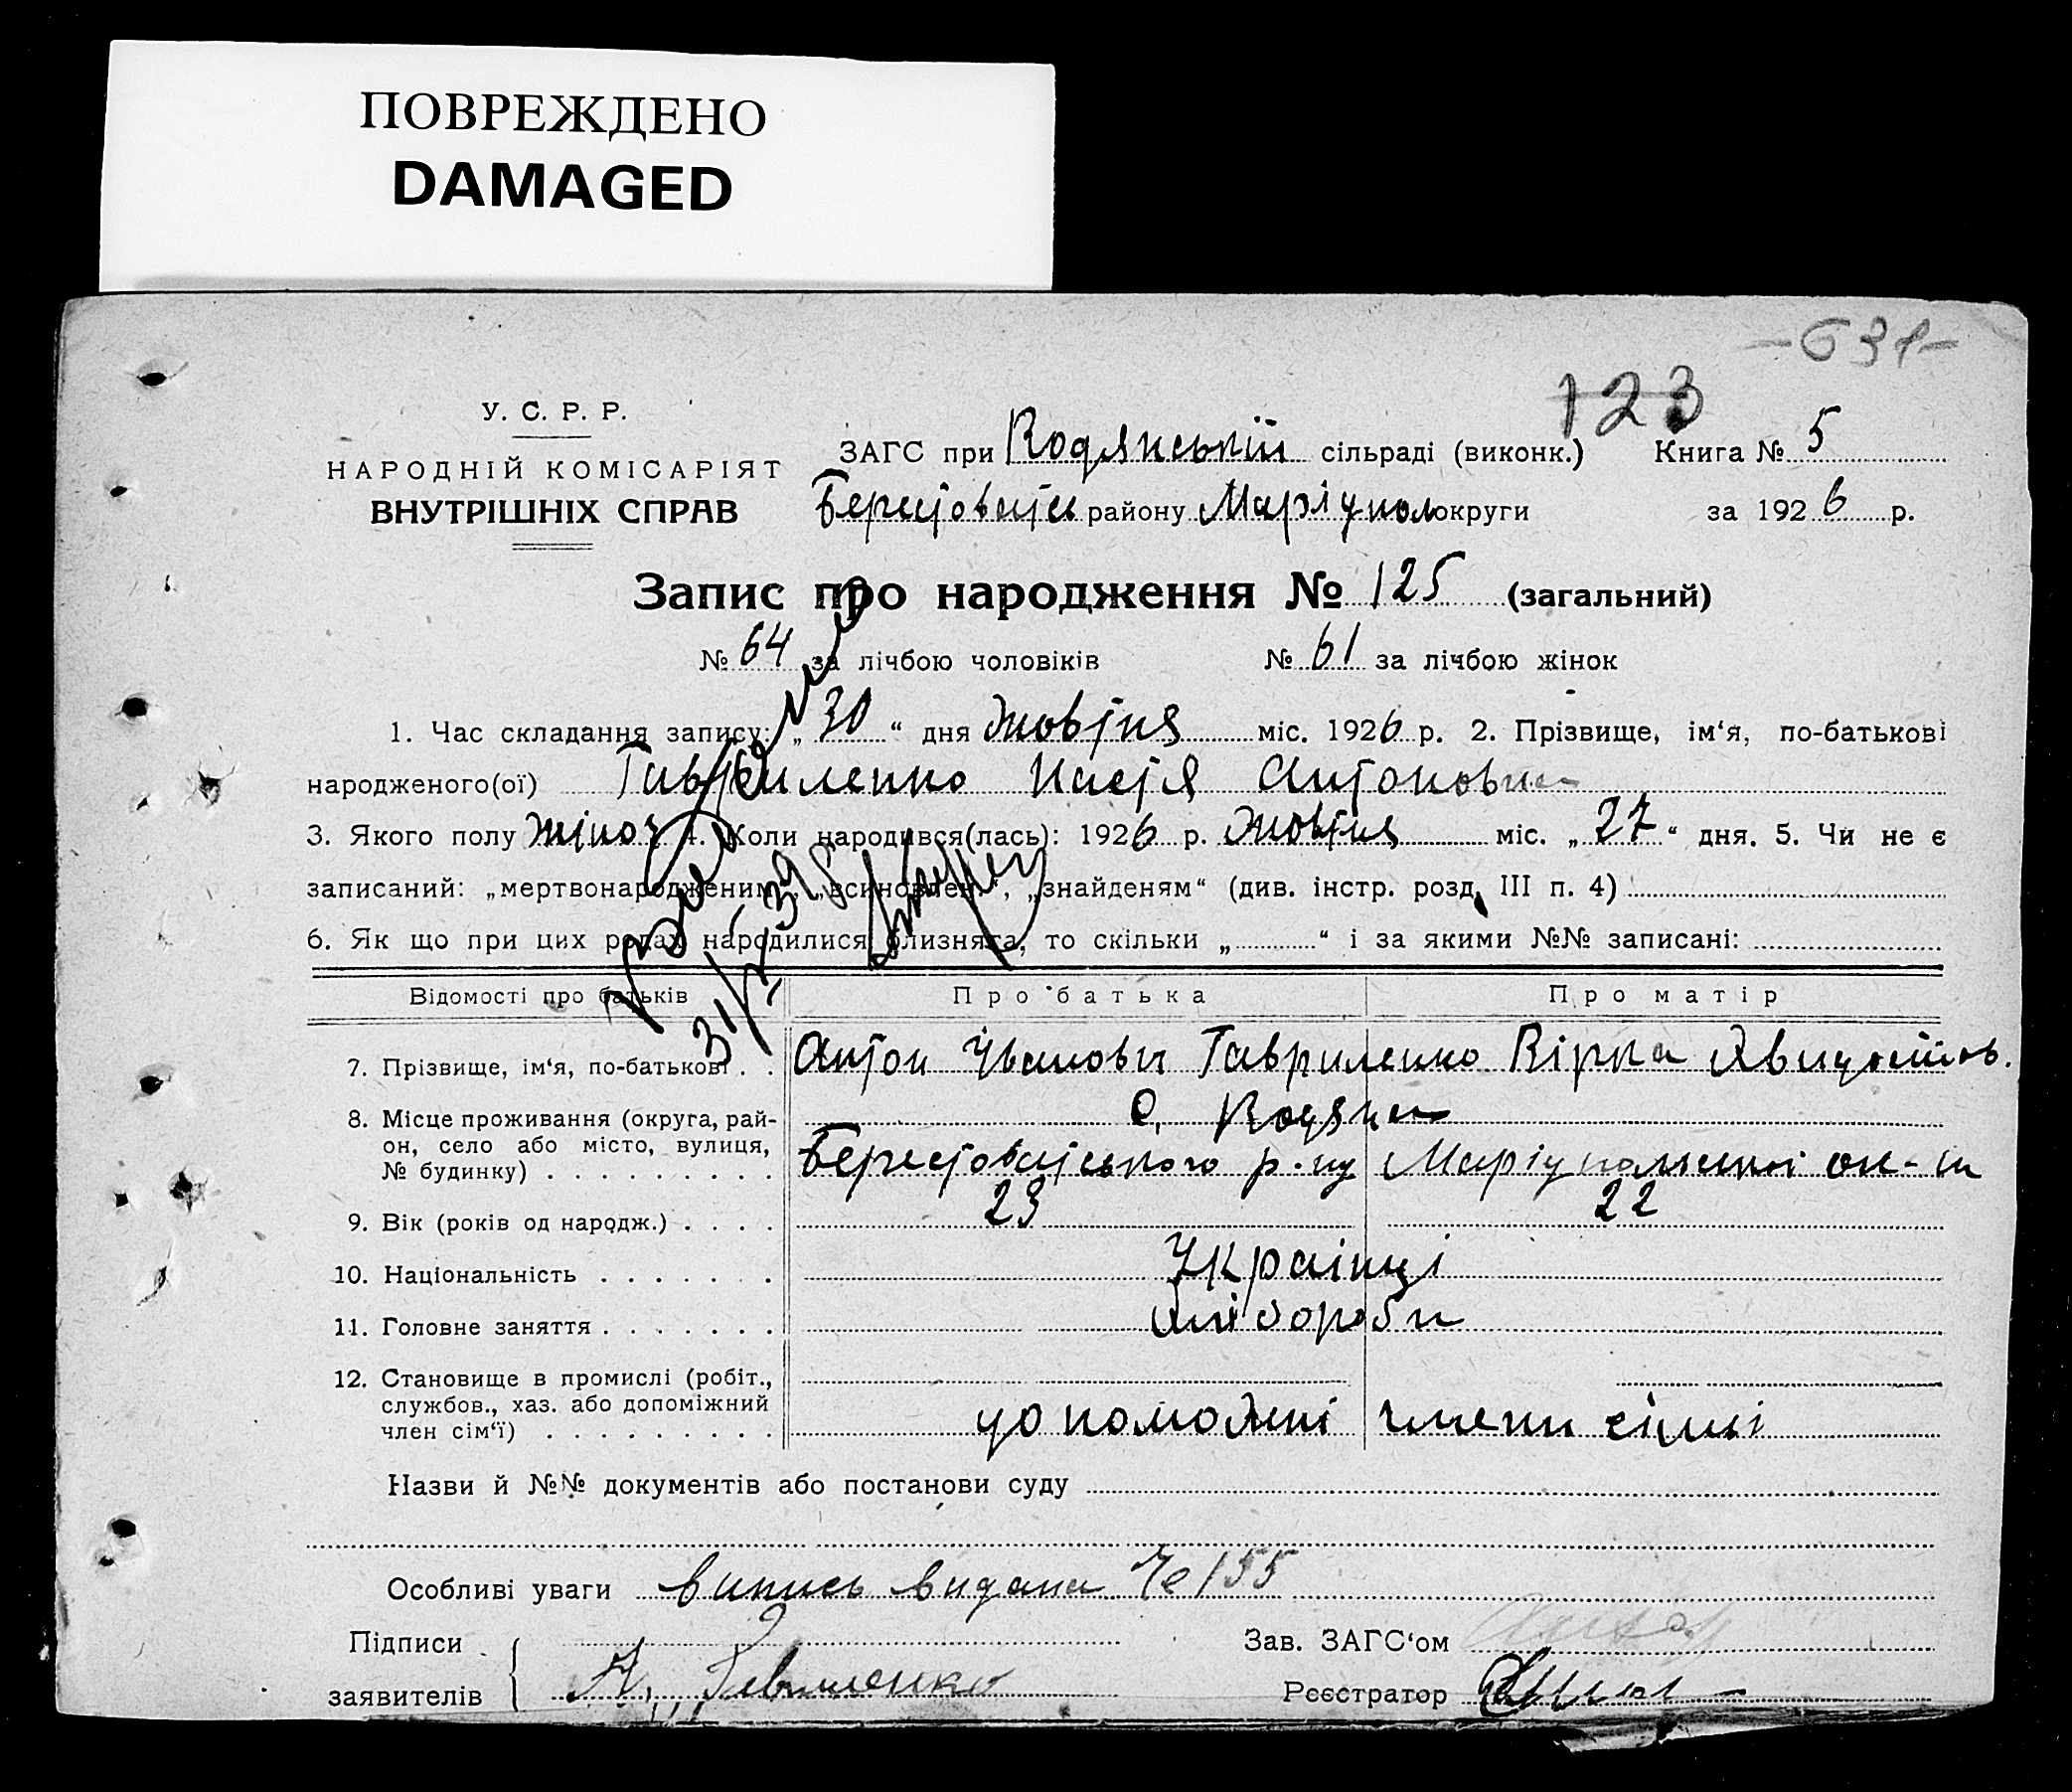 ПОВРЕЖДЕНО
DAMAGED
-631-
123
У. С. Р. Р.
НАРОДНІЙ КОМІСАРІЯТ
ВНУТРІШНІХ СПРАВ
ЗАГС при Водянській сільраді (виконк.) Книга № 5
Берестоватськ району Маріупол округи за 1926 р.
Запис про народження № 125 (загальний)
№ 64 за лічбою чоловіків № 61 за лічбою жінок
1. Час складання запису: „30“ дня жовтня міс. 1926 р. 2. Прізвище, ім‘я, по-батькові
народженого(ої) Гавриленко Настя Антоновна
3. Якого полу жіноч 4. Коли народився(лась): 1926 р. жовтня міс. „27“ дня. 5. Чи не є
записаний: „мертвонародженим“, „всиновлен.“, „знайденям“ (див. інстр. розд. III п. 4)
6. Як що при цих родах народилися близнята, то скільки „ “ і за якими №№ записані:
Відомості про батьків Про батька Про матір
7. Прізвище, ім‘я, по-батькові . . Антон Іванович Гавриленко Вірка
8. Місце проживання (округа, рай-
он, село або місто, вулиця,
№ будинку) . . . . . . . . .
с. Водяна
Берестоватського р-ну Маріупольської ок-ги
9. Вік (років од народж.) . . . . 23 22
10. Національність . . . . . . . Українці
11. Головне заняття . . . . . . . Хлібороби
12. Становище в промислі (робіт.,
службов., хаз. або допоміжний
член сім‘ї) . . . . . . . . .
допоможні члени сімї
Назви й №№ документів або постанови суду
Особливі уваги випись видана № 155
Підписи
заявителів
А. Гавриленко
Зав. ЗАГС‘ом
Реєстратор